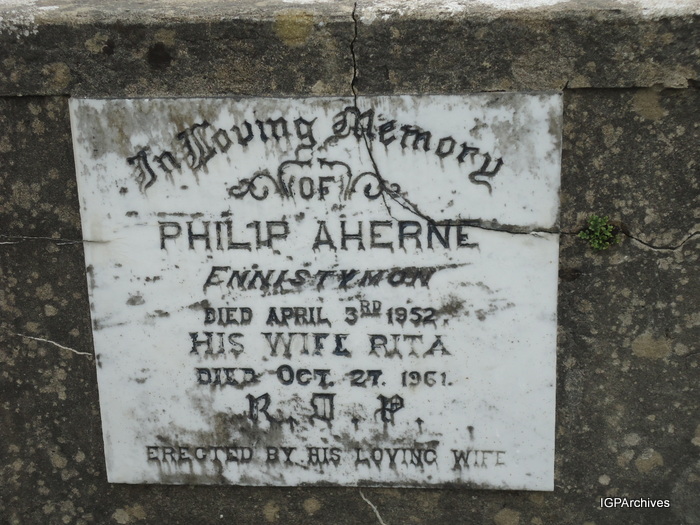 In Loving Memory
OF
PHILIP AHERNE
ENNISTYMON
DIED APRIL 3RD 1952.
HIS WIFE RITA
DIED OCT. 27. 1961.
R. I. P.
ERECTED BY HIS LOVING WIFE
IGPArchives